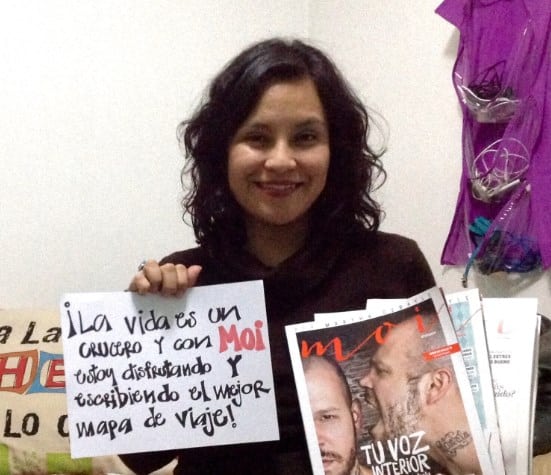 ¡La vida es un
crucero y con Moi
estoy disfrutando y
escribiendo el mejor
mapa de viaje!
moi
TU VOZ
INTERIOR
a La
HE
LO